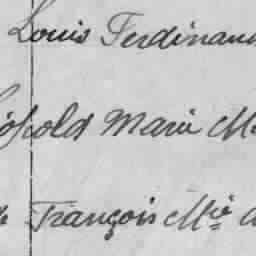 Louis Ferdinand
Léopold Marie
François Mie